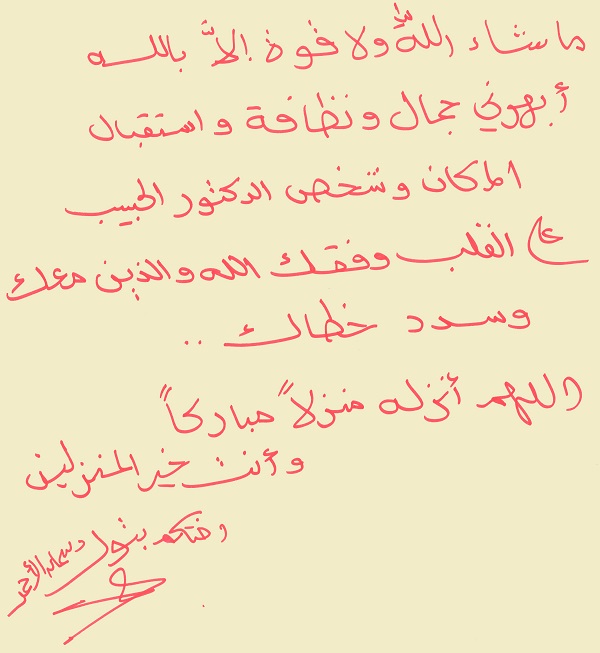 ما شاء اللّه ولا قوة إلاّ بالله
أبهرني جمال ونظافة واستقبال
المكان وشخص الدكتور الحبيب
على القلب وفقك الله والذين معك
وسدد خطاك ..
اللهم أنزله منزلاً مباركاً
وأنت خير المنزلين
اختكم بتول